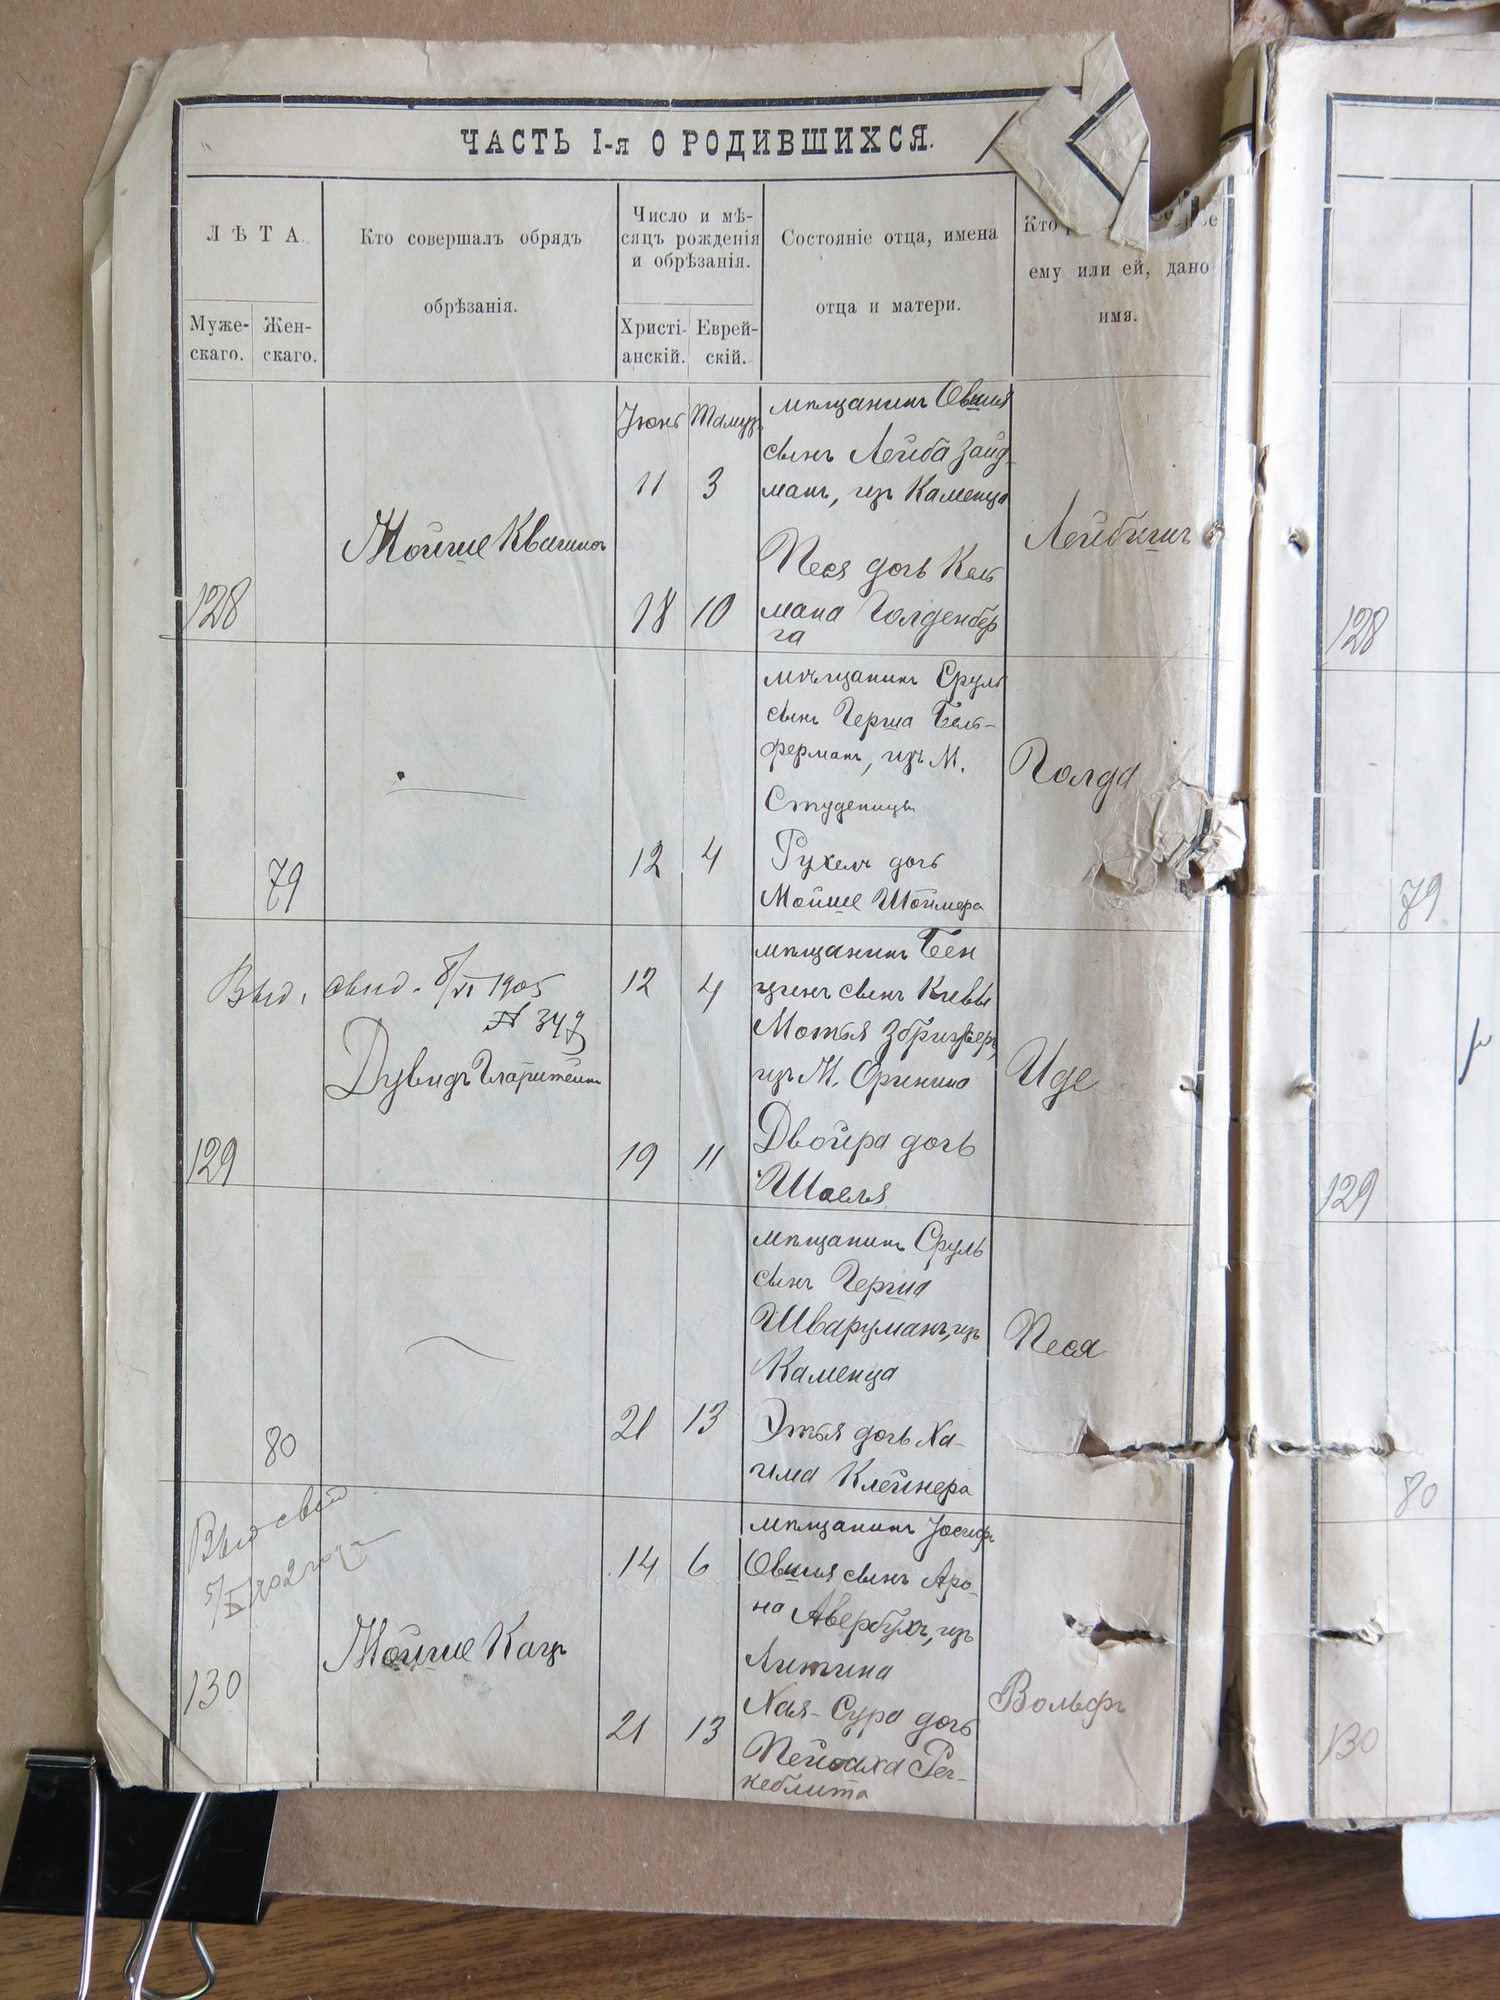 ЧАСТЬ I-я О РОДИВШИХСЯ.
ЛѢТА.
Муже-
скаго.
Жен-
скаго.
Кто совершалъ обрядъ
обрѣзанія.
Число и мѣ-
сяцъ рожденія
и обрѣзанія.
Христі-
анскій.
Еврей-
скій.
Состояніе отца, имена
отца и матери.
Кто
ему или ей, дано
имя.
128
Мойше
Іюнь Тамузъ
11 3
18 10
мѣщанинъ Овшія
сынъ Лейба Зайд-
манъ, изъ Каменца
Песя дочь Кель
мана Голденбер
га
Лейбишъ
79
12 4
мѣщанинъ Сруль
сынъ Герша Бель-
ферманъ, изъ М.
Студеницы
Рухель дочь
Мойше
Голда
Выд. свид. 8/VI 1905
№ 347
129
Дувидъ
12 4
19 11
мѣщанинъ Бен
ціинъ сынъ Кивы
Мотья
изъ М. Оринина
Двойра дочь
Шаеля
Иде
80
21 13
мѣщанинъ Сруль
сынъ Герша
Шварцманъ, изъ
Каменца
Этья дочь Ха-
има Клейнера
Песя
Выд свид
5/X 1902 года
130
Мойше Кацъ
14 6
21 13
мѣщанинъ Іосифъ
Овшія сынъ Аро-
на Авербухъ, изъ
Литина
Хая-Сура дочь
Пейсаха
Вольфъ
128
79
129
80
130